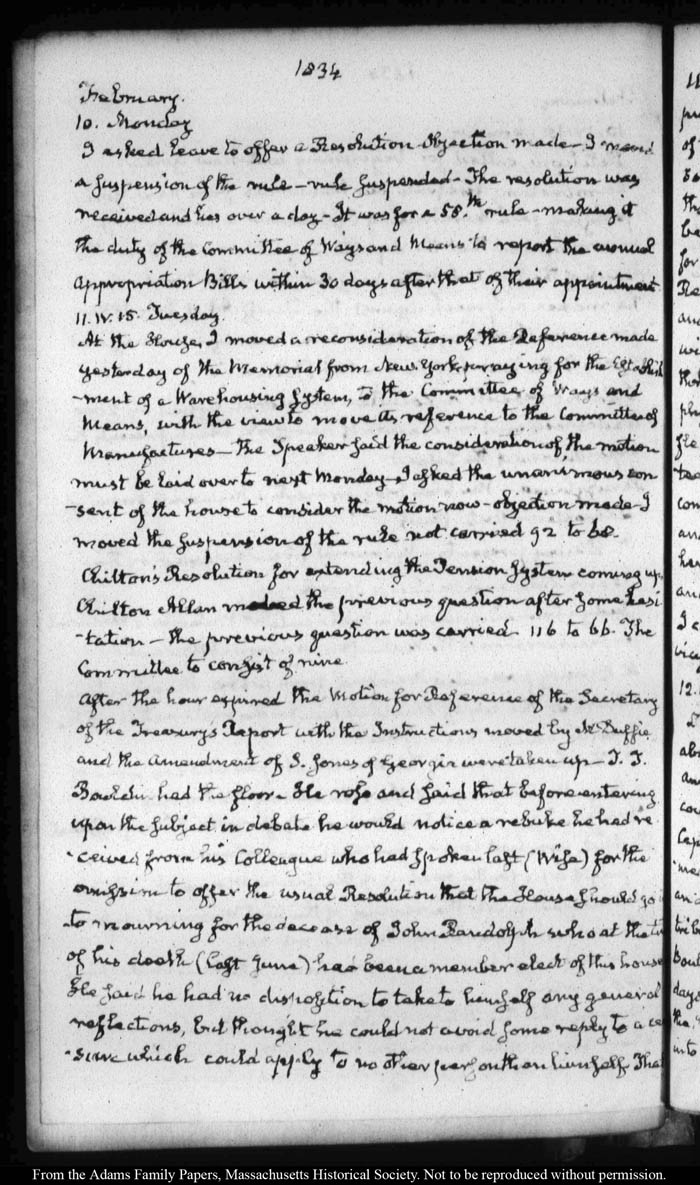 1834
February.
10. Monday
I asked leave to offer a Resolution - Objection made - I moved
a suspension of the rule - rule suspended - The resolution was
received and lies over a day - It was for a 58.th rule - making it
the duty of the Committee of Ways and Means to report the annual
appropriation Bills within 30 days after that of their appointment.
11. IV. 15. Tuesday.
At the House, I moved a reconsideration of the Reference made
yesterday of the Memorial from New-York, praying for the Establish
-ment of a Warehousing System, to the Committee of Ways and
Means, with the view to move its reference to the Committee of
Manufactures - The Speaker said the consideration of the motion
must be laid over to next Monday - I asked the unanimous con
-sent of the house to consider the motion now - objection made - I
moved the suspension of the rule not carried 92 to 68.
Chilton's Resolution for extending the Pension System coming up,
Chilton Allan moved the previous question after some hesi
-tation - the previous question was carried 116 to 66. The
Committee to consist of nine.
After the hour expired the Motion for Reference of the Secretary
of the Treasury's Report with the Instructions moved by McDuffie
and the amendment of S. Jones of Georgia were taken up - T. T.
Bouldin had the floor. He rose and said that before entering
upon the subject in debate he would notice a rebuke he had re
-ceived from his Colleague who had spoken last (Wise) for the
omission to offer the usual Resolution that the House should go
-to mourning for the decease of John Randolph who at the
of his death (last June) had been a member elect of this house
He said he had no disposition to take to himself any general
reflections, but thought he could not avoid some reply to a ce
-sure which could apply to no other person than himself. That
From the Adams Family Papers, Massachusetts Historical Society. Not to be reproduced without permission.